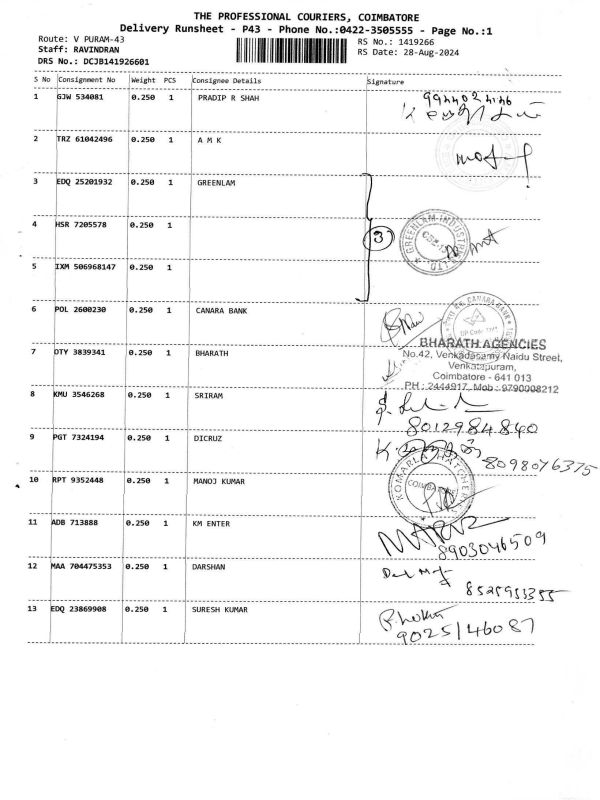 THE PROFESSIONAL COURIERS, COIMBATORE
Delivery Runsheet - P43 - Phone No.:0422-3505555 - Page No.:1
Route: V PURAM-43
Staff: RAVINDRAN
DRS No.: DCJB141926601
RS No.: 1419266
RS Date: 28-Aug-2024
S No Consignment No Weight PCS Consignee Details Signature
1 GJW 534081 0.250 1 PRADIP R SHAH
2 TRZ 61042496 0.250 1 A M K
3 EDQ 25201932 0.250 1 GREENLAM
4 HSR 7205578 0.250 1
3
GREENLAM INDUSTRIES LTD.
5 IXM 506968147 0.250 1
6 POL 2600230 0.250 1 CANARA BANK
CANARA BANK
7 OTY 3839341 0.250 1 BHARATH
BHARATH AGENCIES
No.42, Venkadasamy Naidu Street,
Venkatapuram,
Coimbatore - 641 013
PH : 2444917 Mob : 9790008212
8 KMU 3546268 0.250 1 SRIRAM
8012984840
9 PGT 7324194 0.250 1 DICRUZ
8098076375
10 RPT 9352448 0.250 1 MANOJ KUMAR
11 ADB 713888 0.250 1 KM ENTER
8903046509
12 MAA 704475353 0.250 1 DARSHAN
13 EDQ 23869908 0.250 1 SURESH KUMAR
9025146087